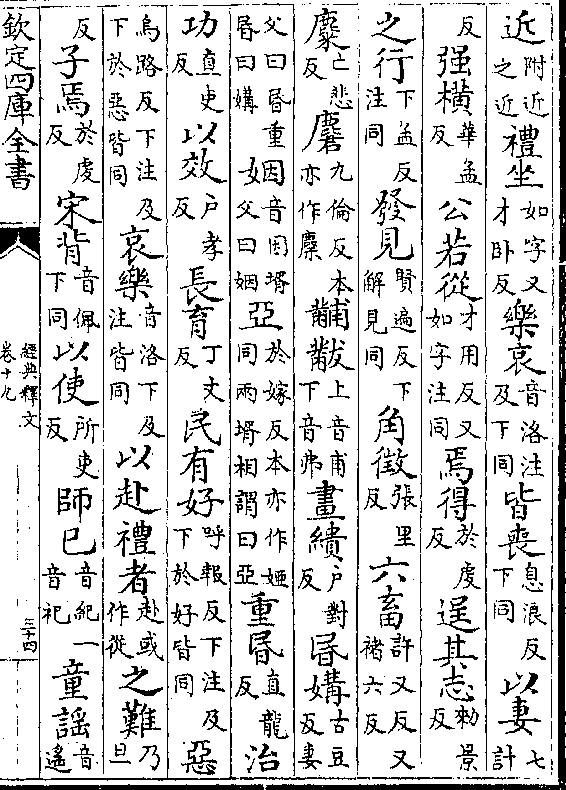 近附近之近禮坐如字又才卧反樂哀音洛注及下同皆喪息浪反下同以妻七計
反强横華孟反公若從才用反又如字注同焉得於虔反逞其志勑景反
之行下孟反注同發見賢遍反下解見同角徵張里反六畜許又反又褚六反
麋亡悲反麏九倫反本亦作麇黼黻上音甫下音弗畫繢户對反昬媾古豆反妻
父曰昬重昬曰媾女因音因壻父曰姻亞於嫁反本亦作婭同兩壻相謂曰亞重昬直龍反治
功直吏反以效户孝反長育丁丈反民有好呼報反下注及下於好皆同惡
烏路反下注及下於惡皆同哀樂音洛下及注皆同以赴禮者赴或作從之難乃旦
反子焉於虔反宋背音佩下同以使所吏反師已音紀一音祀童謡音遥
欽定四庫全書
經典釋文
卷十九
三十四